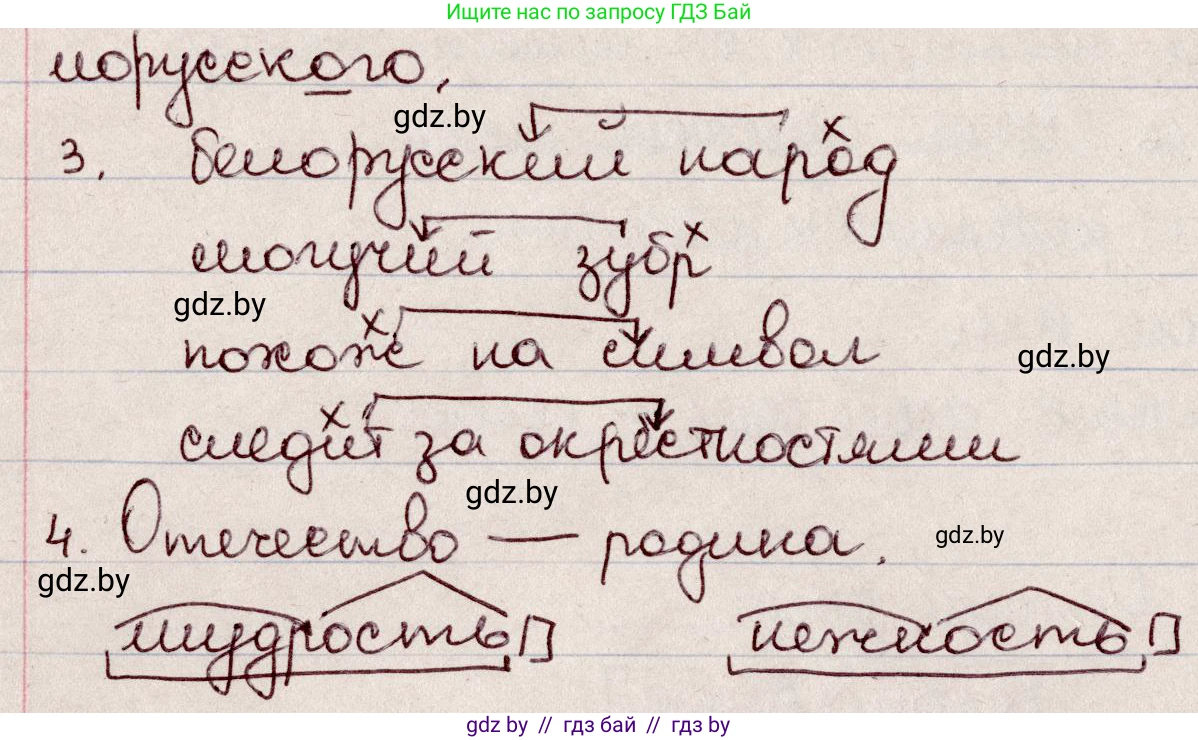 Ищите нас по запросу ГДЗ Бай
лорусского.
gdz.by
3. белорусский народ
могучий зубр
gdz.by
похож на символ
gdz.by
следит за окрестностями
gdz.by
4. Отечество — родина.
gdz.by
gdz.by
мудрость нежность
gdz.by // гдз бай // гдз by